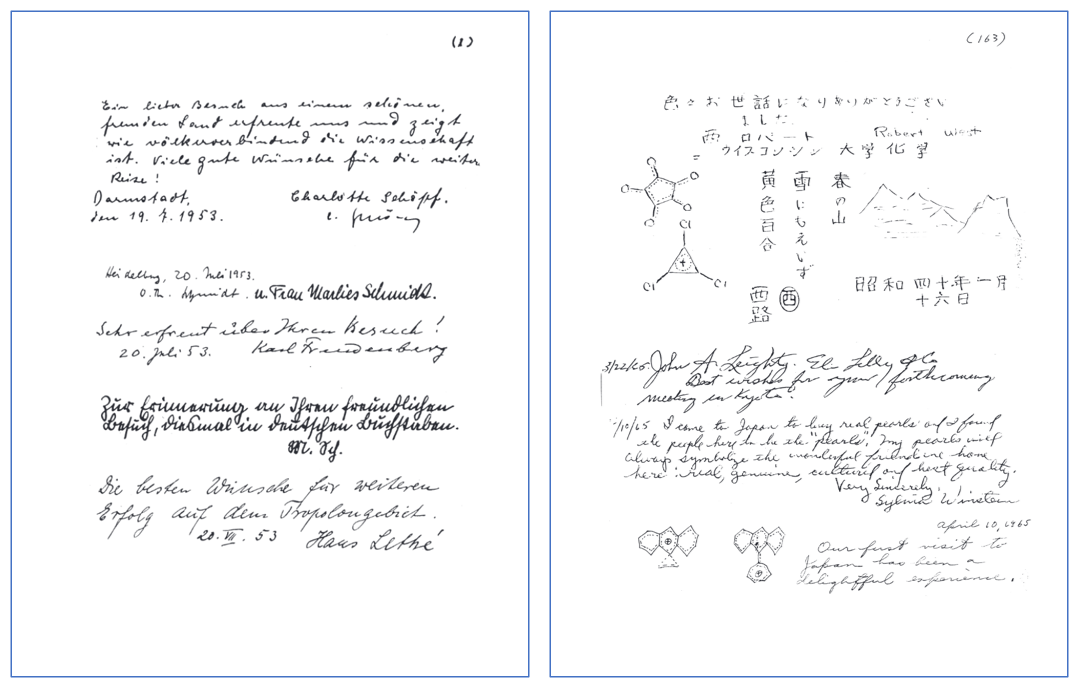 (1)
Ein lieber Besuch aus einem schönen,
fremden Land erfreute uns und zeigt
wie völkerverbindend die Wissenschaft
ist. Viele gute Wünsche für die weitere
Reise!
Darmstadt, Charlotte Schöpf.
den 19. 7. 1953. C.
Heidelberg, 20. Juli 1953.
Schmidt. u. Frau Marlies Schmidt.
Sehr erfreut über Ihren Besuch!
20. Juli 53. Karl Freudenberg
Zur Erinnerung an Ihren freundlichen
Besuch, diesmal in deutschen Buchstaben.
M. Sch.
Die besten Wünsche für weiteren
Erfolg auf dem Tropolongebiet.
20. VII. 53 Hans Lettré
(163)
色々お世話になりありがとうござい
ました。
西 ロバート Robert West
ウイスコンシン 大学 化学
春の山
雪にもえいず
黄色百合
西路 西
Cl
Cl Cl
昭和四十年一月
十六日
3/22/65. John A. Leighty. Eli Lilly & Co
Best wishes for your forthcoming
meeting in Kyoto!
/10/65 I came to Japan to buy real pearls and I found
the people here to be the "pearls". My pearls will
always symbolize the wonderful friends we have
here: real, genuine, cultured and best quality.
Very Sincerely,
Sylvia Winstein
April 10, 1965
Our first visit to
Japan has been a
delightful experience.